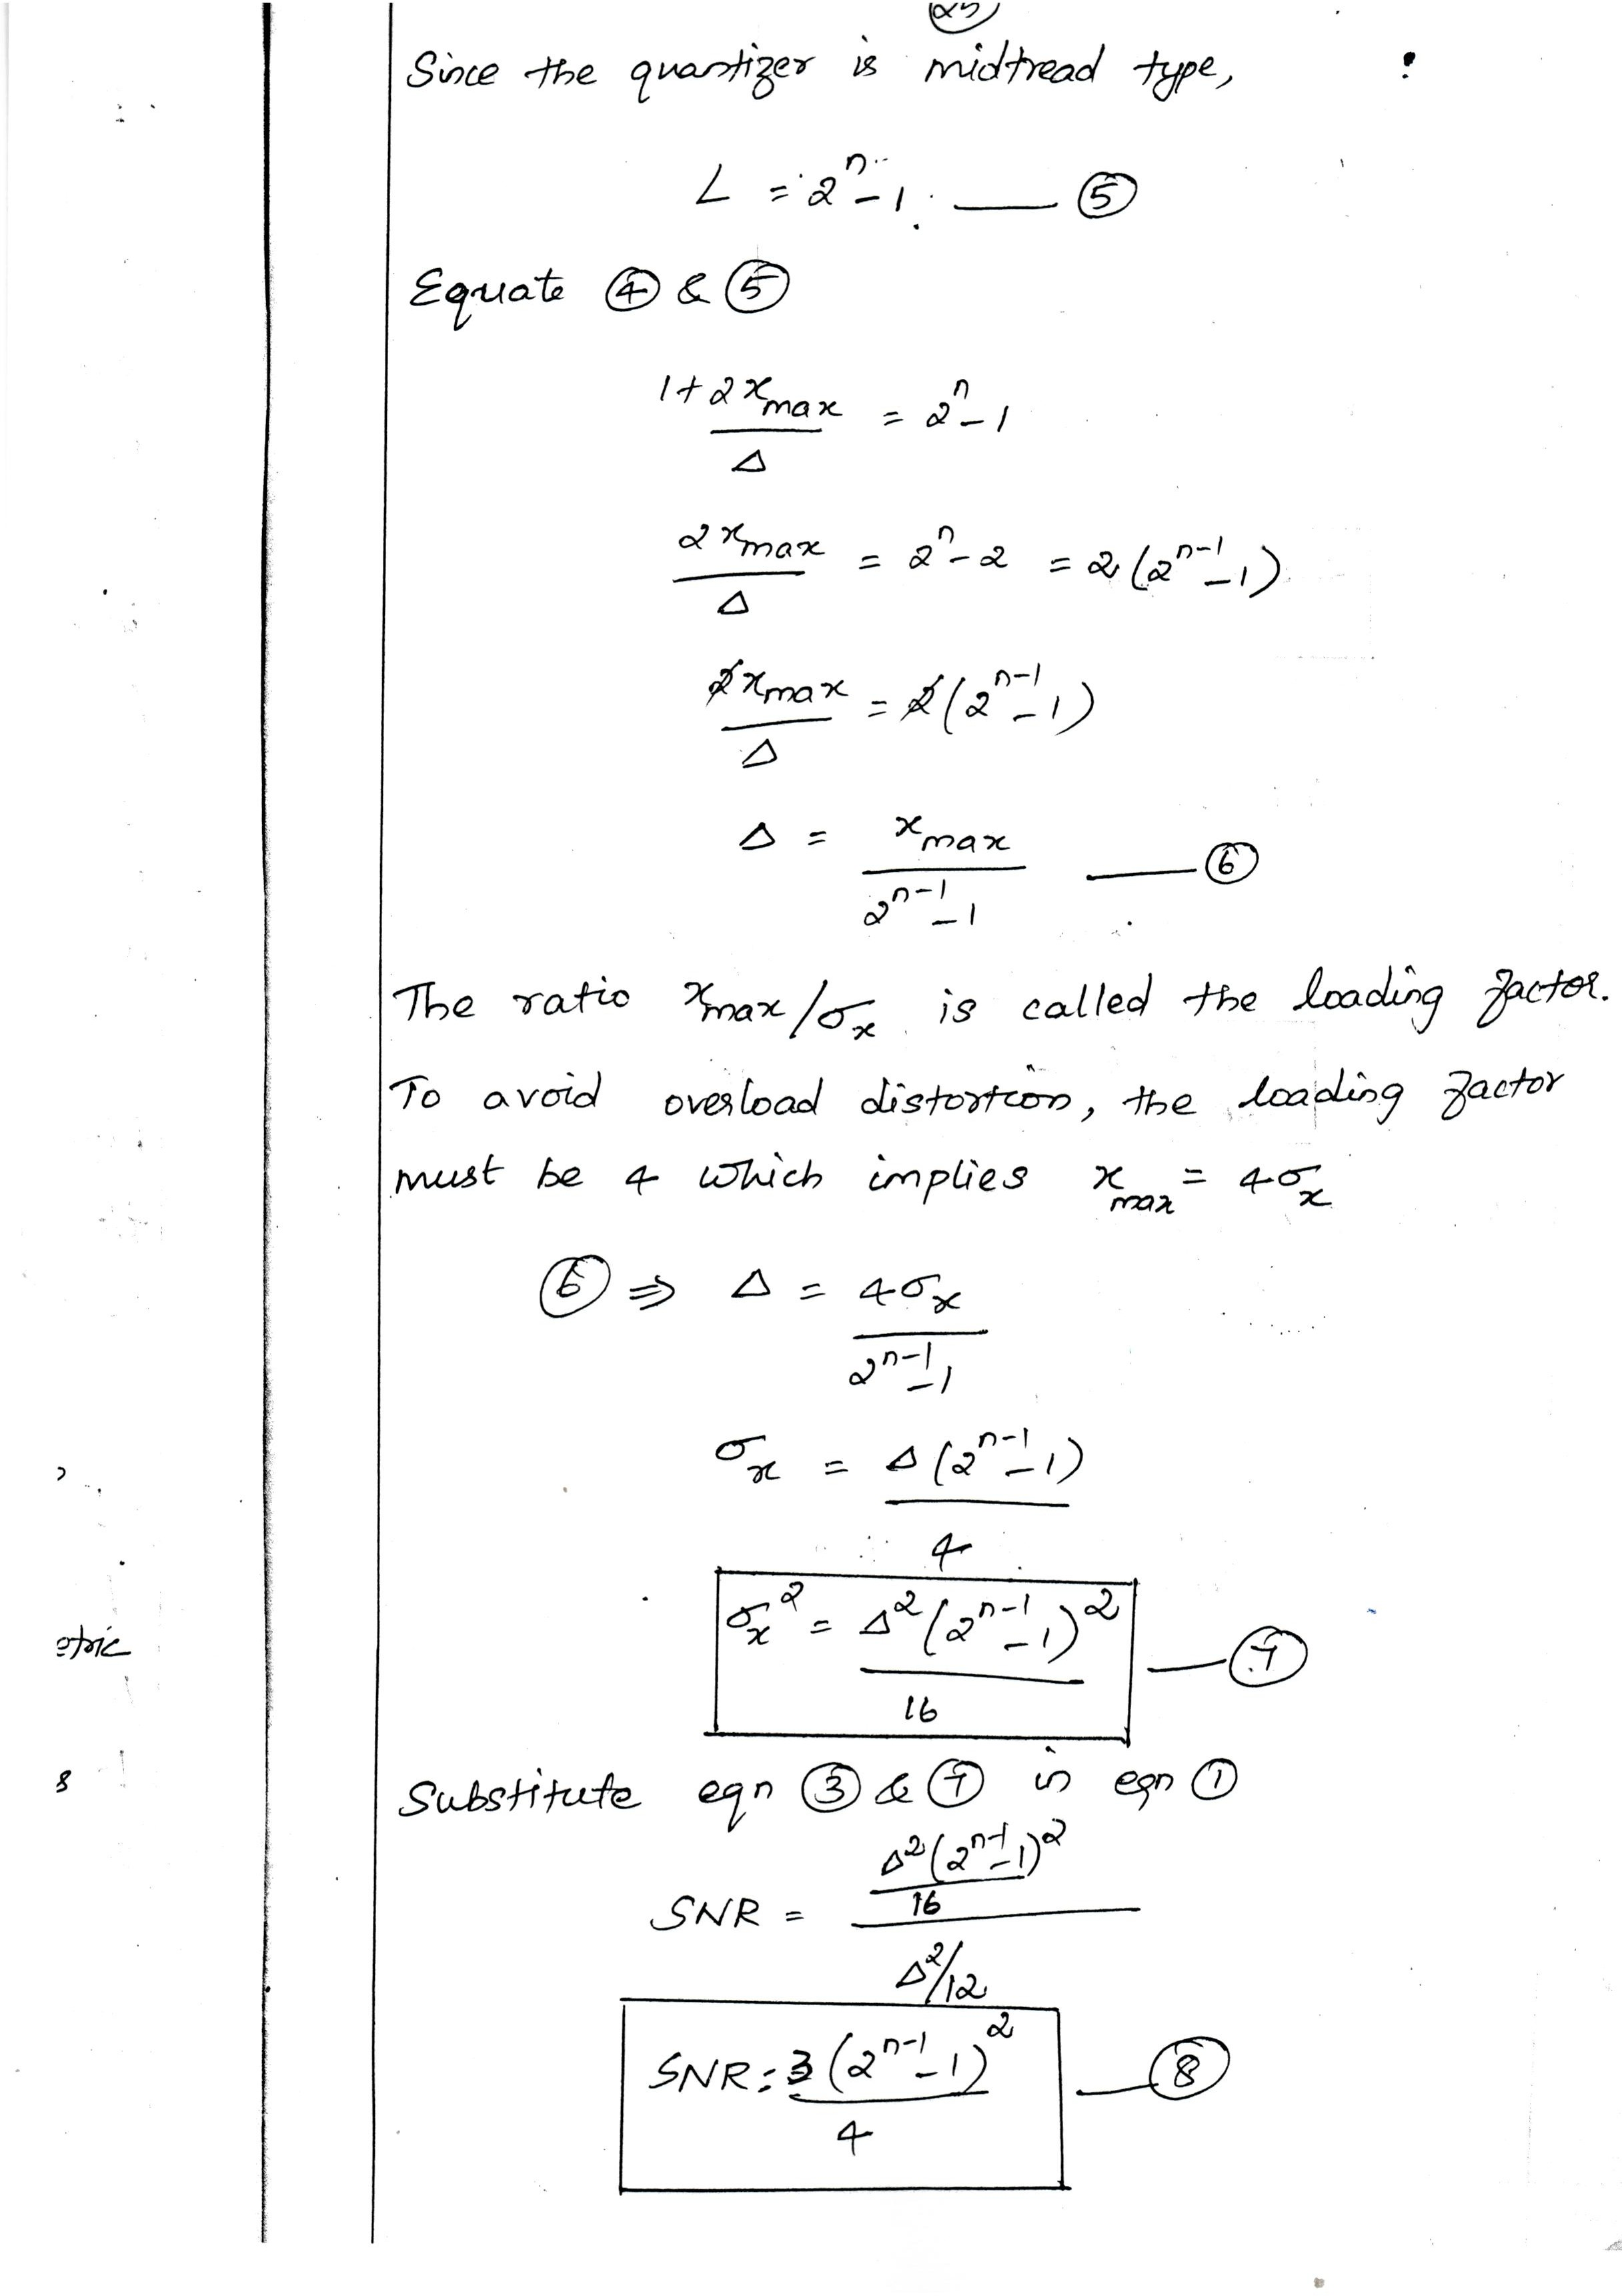 25
Since the quantizer is midtread type,
L = 2^n - 1. —— ⑤
Equate ④ & ⑤
1 + 2x_max / Δ = 2^n - 1
2x_max / Δ = 2^n - 2 = 2(2^(n-1) - 1)
2x_max / Δ = 2(2^(n-1) - 1)
Δ = x_max / 2^(n-1) - 1 —— ⑥
The ratio x_max/σ_x is called the loading factor.
To avoid overload distortion, the loading factor
must be 4 which implies x_max = 4σ_x
⑥ ⇒ Δ = 4σ_x / 2^(n-1) - 1
σ_x = Δ(2^(n-1) - 1) / 4
σ_x^2 = Δ^2(2^(n-1) - 1)^2 / 16 —— ⑦
etric
Substitute eqn ③ & ⑦ in eqn ①
SNR = Δ^2(2^(n-1) - 1)^2 / 16 / Δ^2/12
SNR = 3(2^(n-1) - 1)^2 / 4 —— ⑧